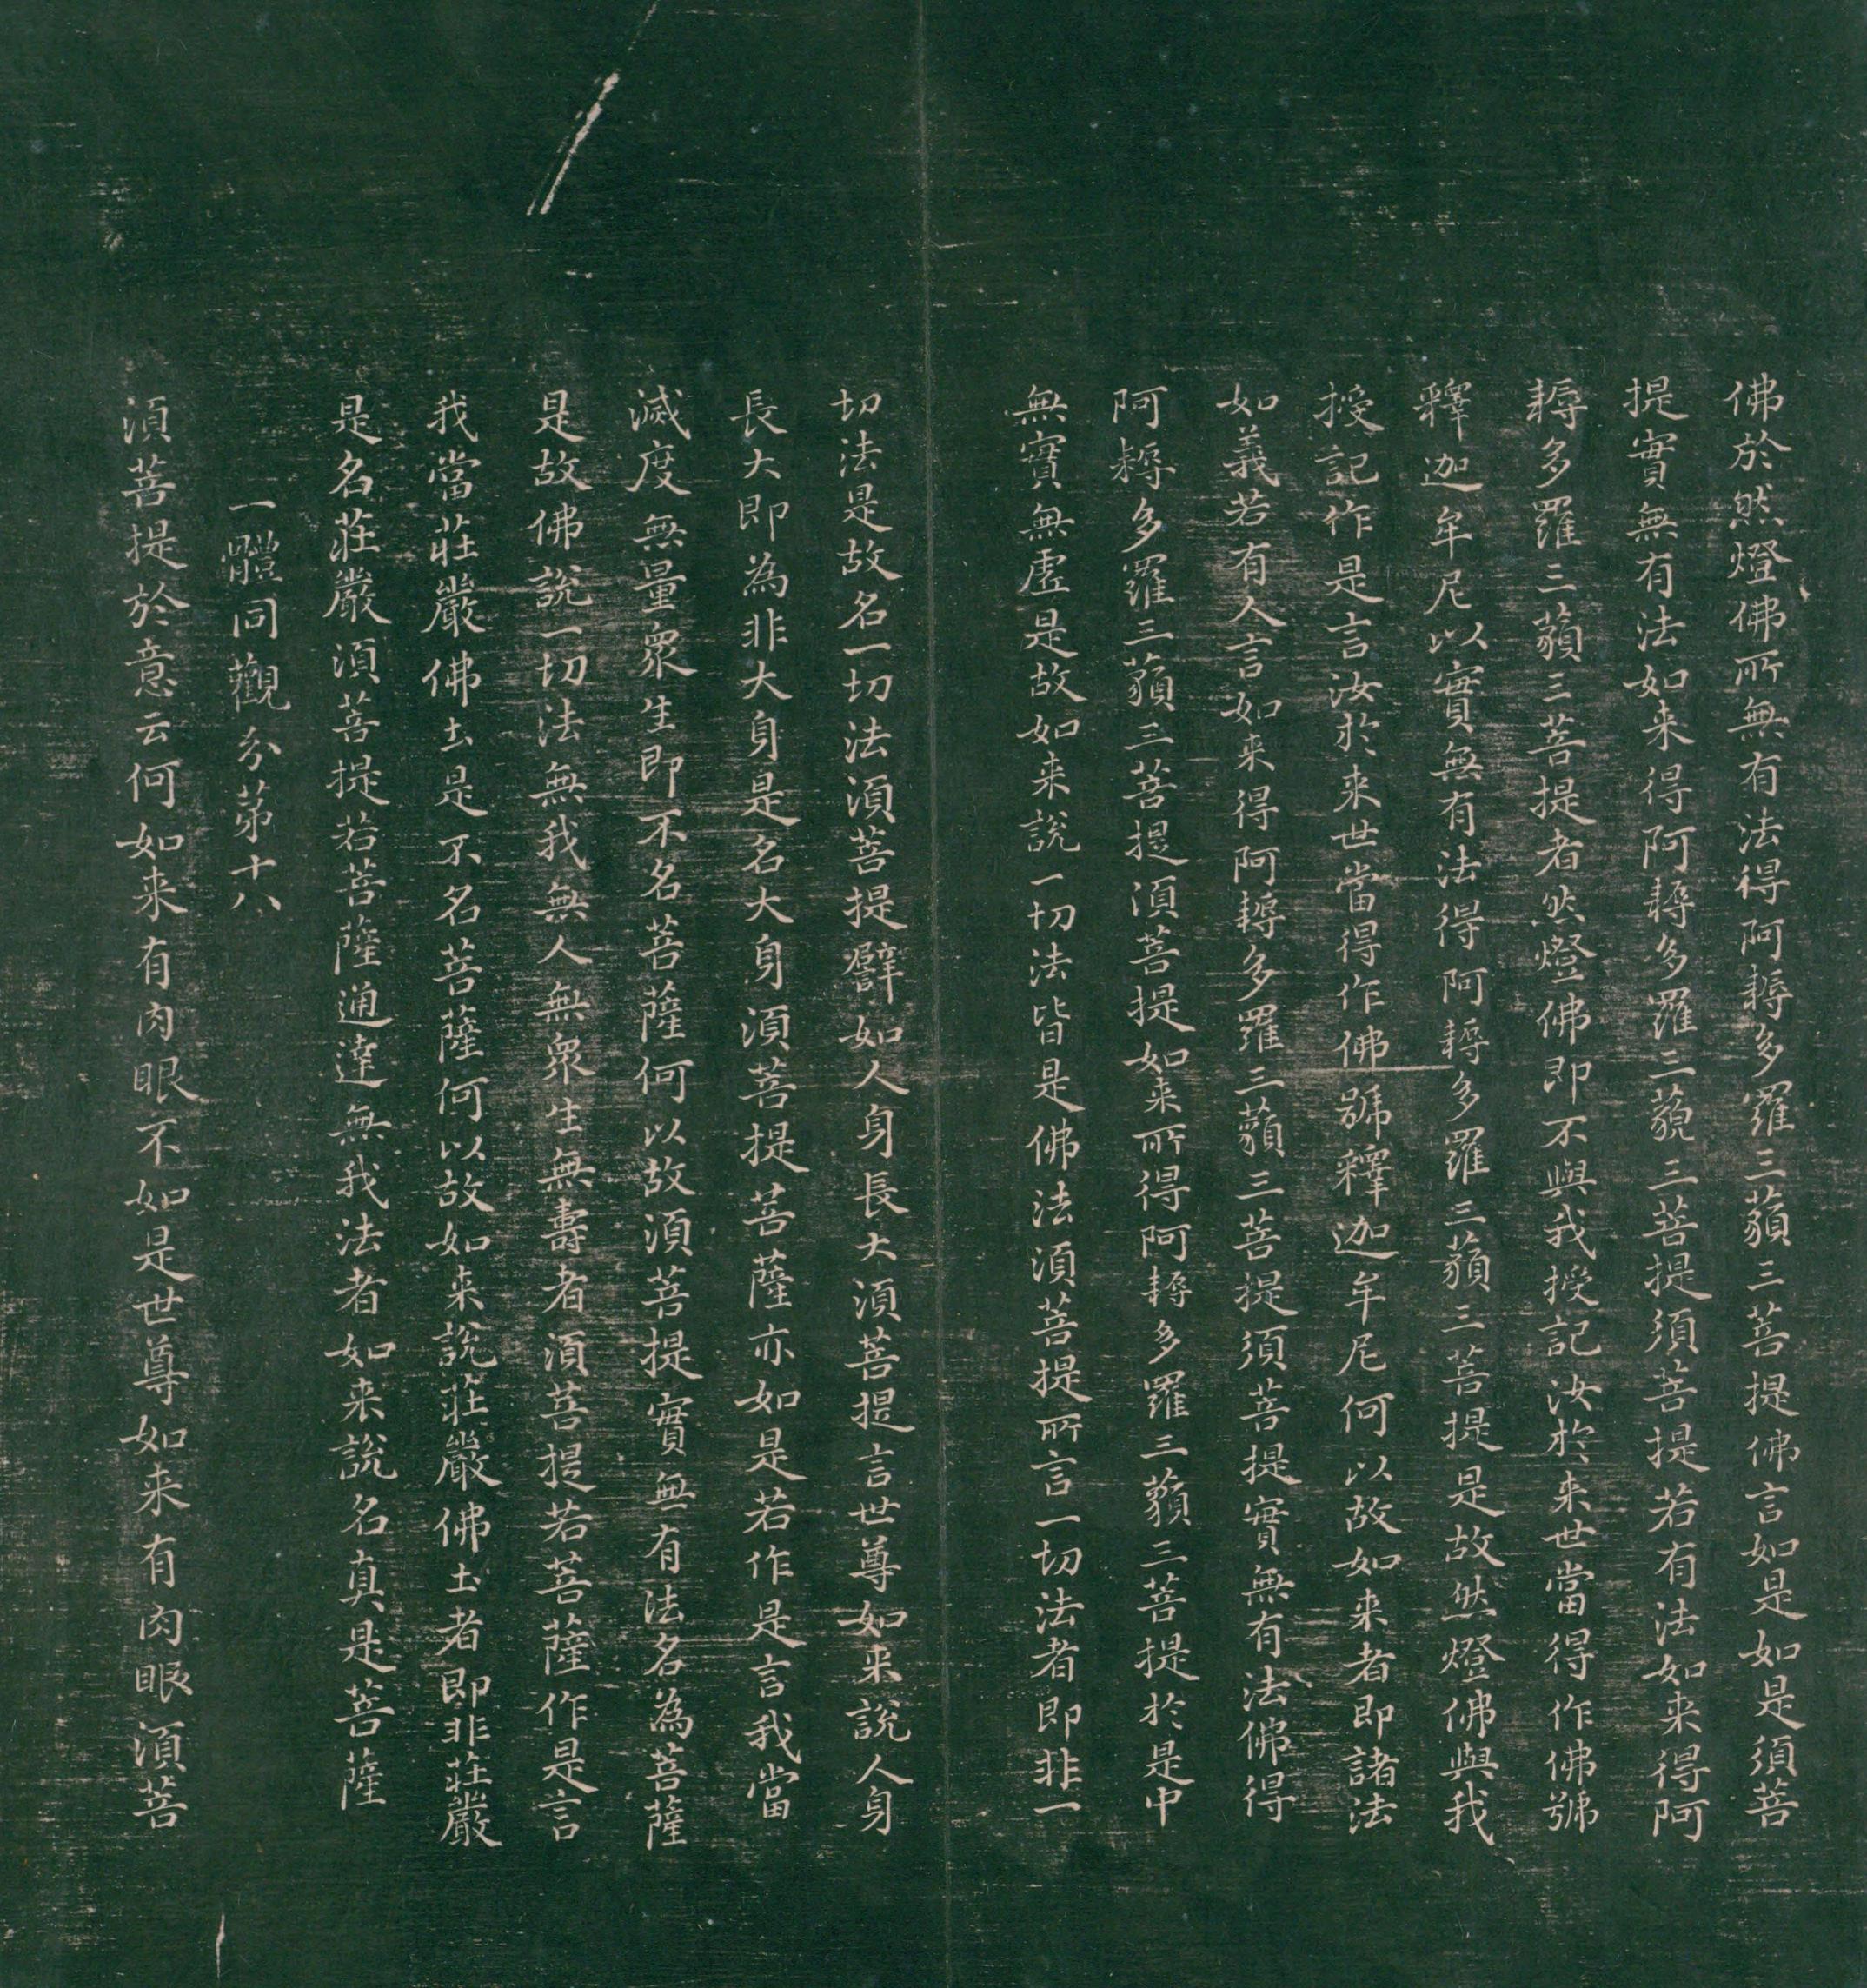 佛於然燈佛所無有法得阿耨多羅三藐三菩提佛言如是如是須菩
提實無有法如来得阿耨多羅三藐三菩提須菩提若有法如来得阿
耨多羅三藐三菩提者然燈佛即不與我授記汝於来世當得作佛號
釋迦牟尼以實無有法得阿耨多羅三藐三菩提是故然燈佛與我
授記作是言汝於来世當得作佛號釋迦牟尼何以故如来者即諸法
如義若有人言如来得阿耨多羅三藐三菩提須菩提實無有法佛得
阿耨多羅三藐三菩提須菩提如来所得阿耨多羅三藐三菩提於是中
無實無虛是故如来說一切法皆是佛法須菩提所言一切法者即非一
切法是故名一切法須菩提譬如人身長大須菩提言世尊如来說人身
長大即為非大身是名大身須菩提菩薩亦如是若作是言我當
滅度無量眾生即不名菩薩何以故須菩提實無有法名為菩薩
是故佛說一切法無我無人無眾生無壽者須菩提若菩薩作是言
我當莊嚴佛土是不名菩薩何以故如来說莊嚴佛土者即非莊嚴
是名莊嚴須菩提若菩薩通達無我法者如来說名真是菩薩
一體同觀分第十八
須菩提於意云何如来有肉眼不如是世尊如来有肉眼須菩